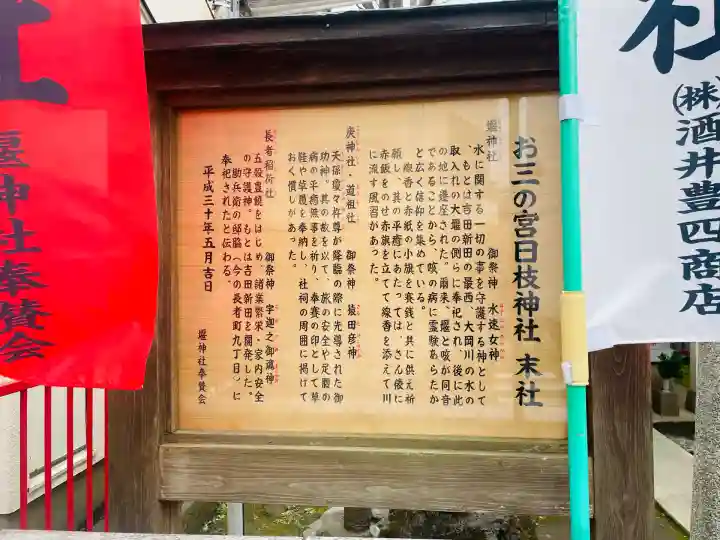 お三の宮日枝神社 末社
堰神社 御祭神 水速女神
水に関する一切の事を守護する神として
、もとは吉田新田の最西、大岡川の水の
取入れの大堰の側らに奉祀され、後に此
の地に遷座された。爾来、堰と咳が同音
であることから、咳の病に霊験あらたか
と広く信仰を集めている。
線香と赤紙の小旗を賽銭と共に供え祈
願し、其の平癒にあたっては、さん俵に
赤飯をのせ赤旗を立てて線香を添えて川
に流す風習があった。
庚神社・道祖社 御祭神 猿田彦神
天孫瓊々杵尊が降臨の際に先導された御
功神、其の故を以て、旅の安全や足腰の
病の平癒無事を祈り、奉賽の印として草
鞋や草履を奉納し、社祠の周囲に掲げて
おく慣しがあった。
長者稲荷社 御祭神 宇迦之御魂神
五穀豊饒をはじめ、諸業繁栄・家内安全
の守護神。もとは吉田新田を開発した。
助兵衛の邸脇(今の長者町九丁目)に
奉祀されたと伝わる。
平成三十年五月吉日
堰神社奉賛会
社
(株)酒井豊四商店
社
堰神社奉賛会